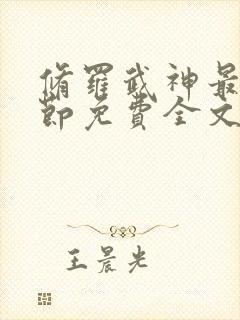 脩羅武神最
節免費全文
王晨光